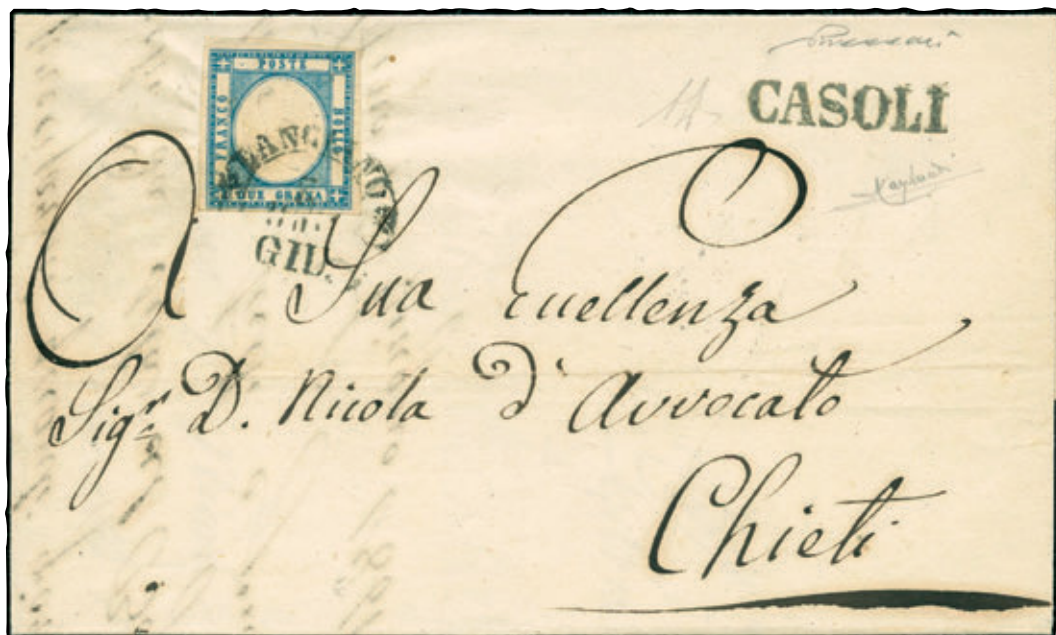 POSTE
FRANCO
BOLLO
DUE GRANA
CASOLI
LANCIANO
GIU.
A Sua Eccellenza
Sigr. D. Nicola d'Avvocato
Chieti